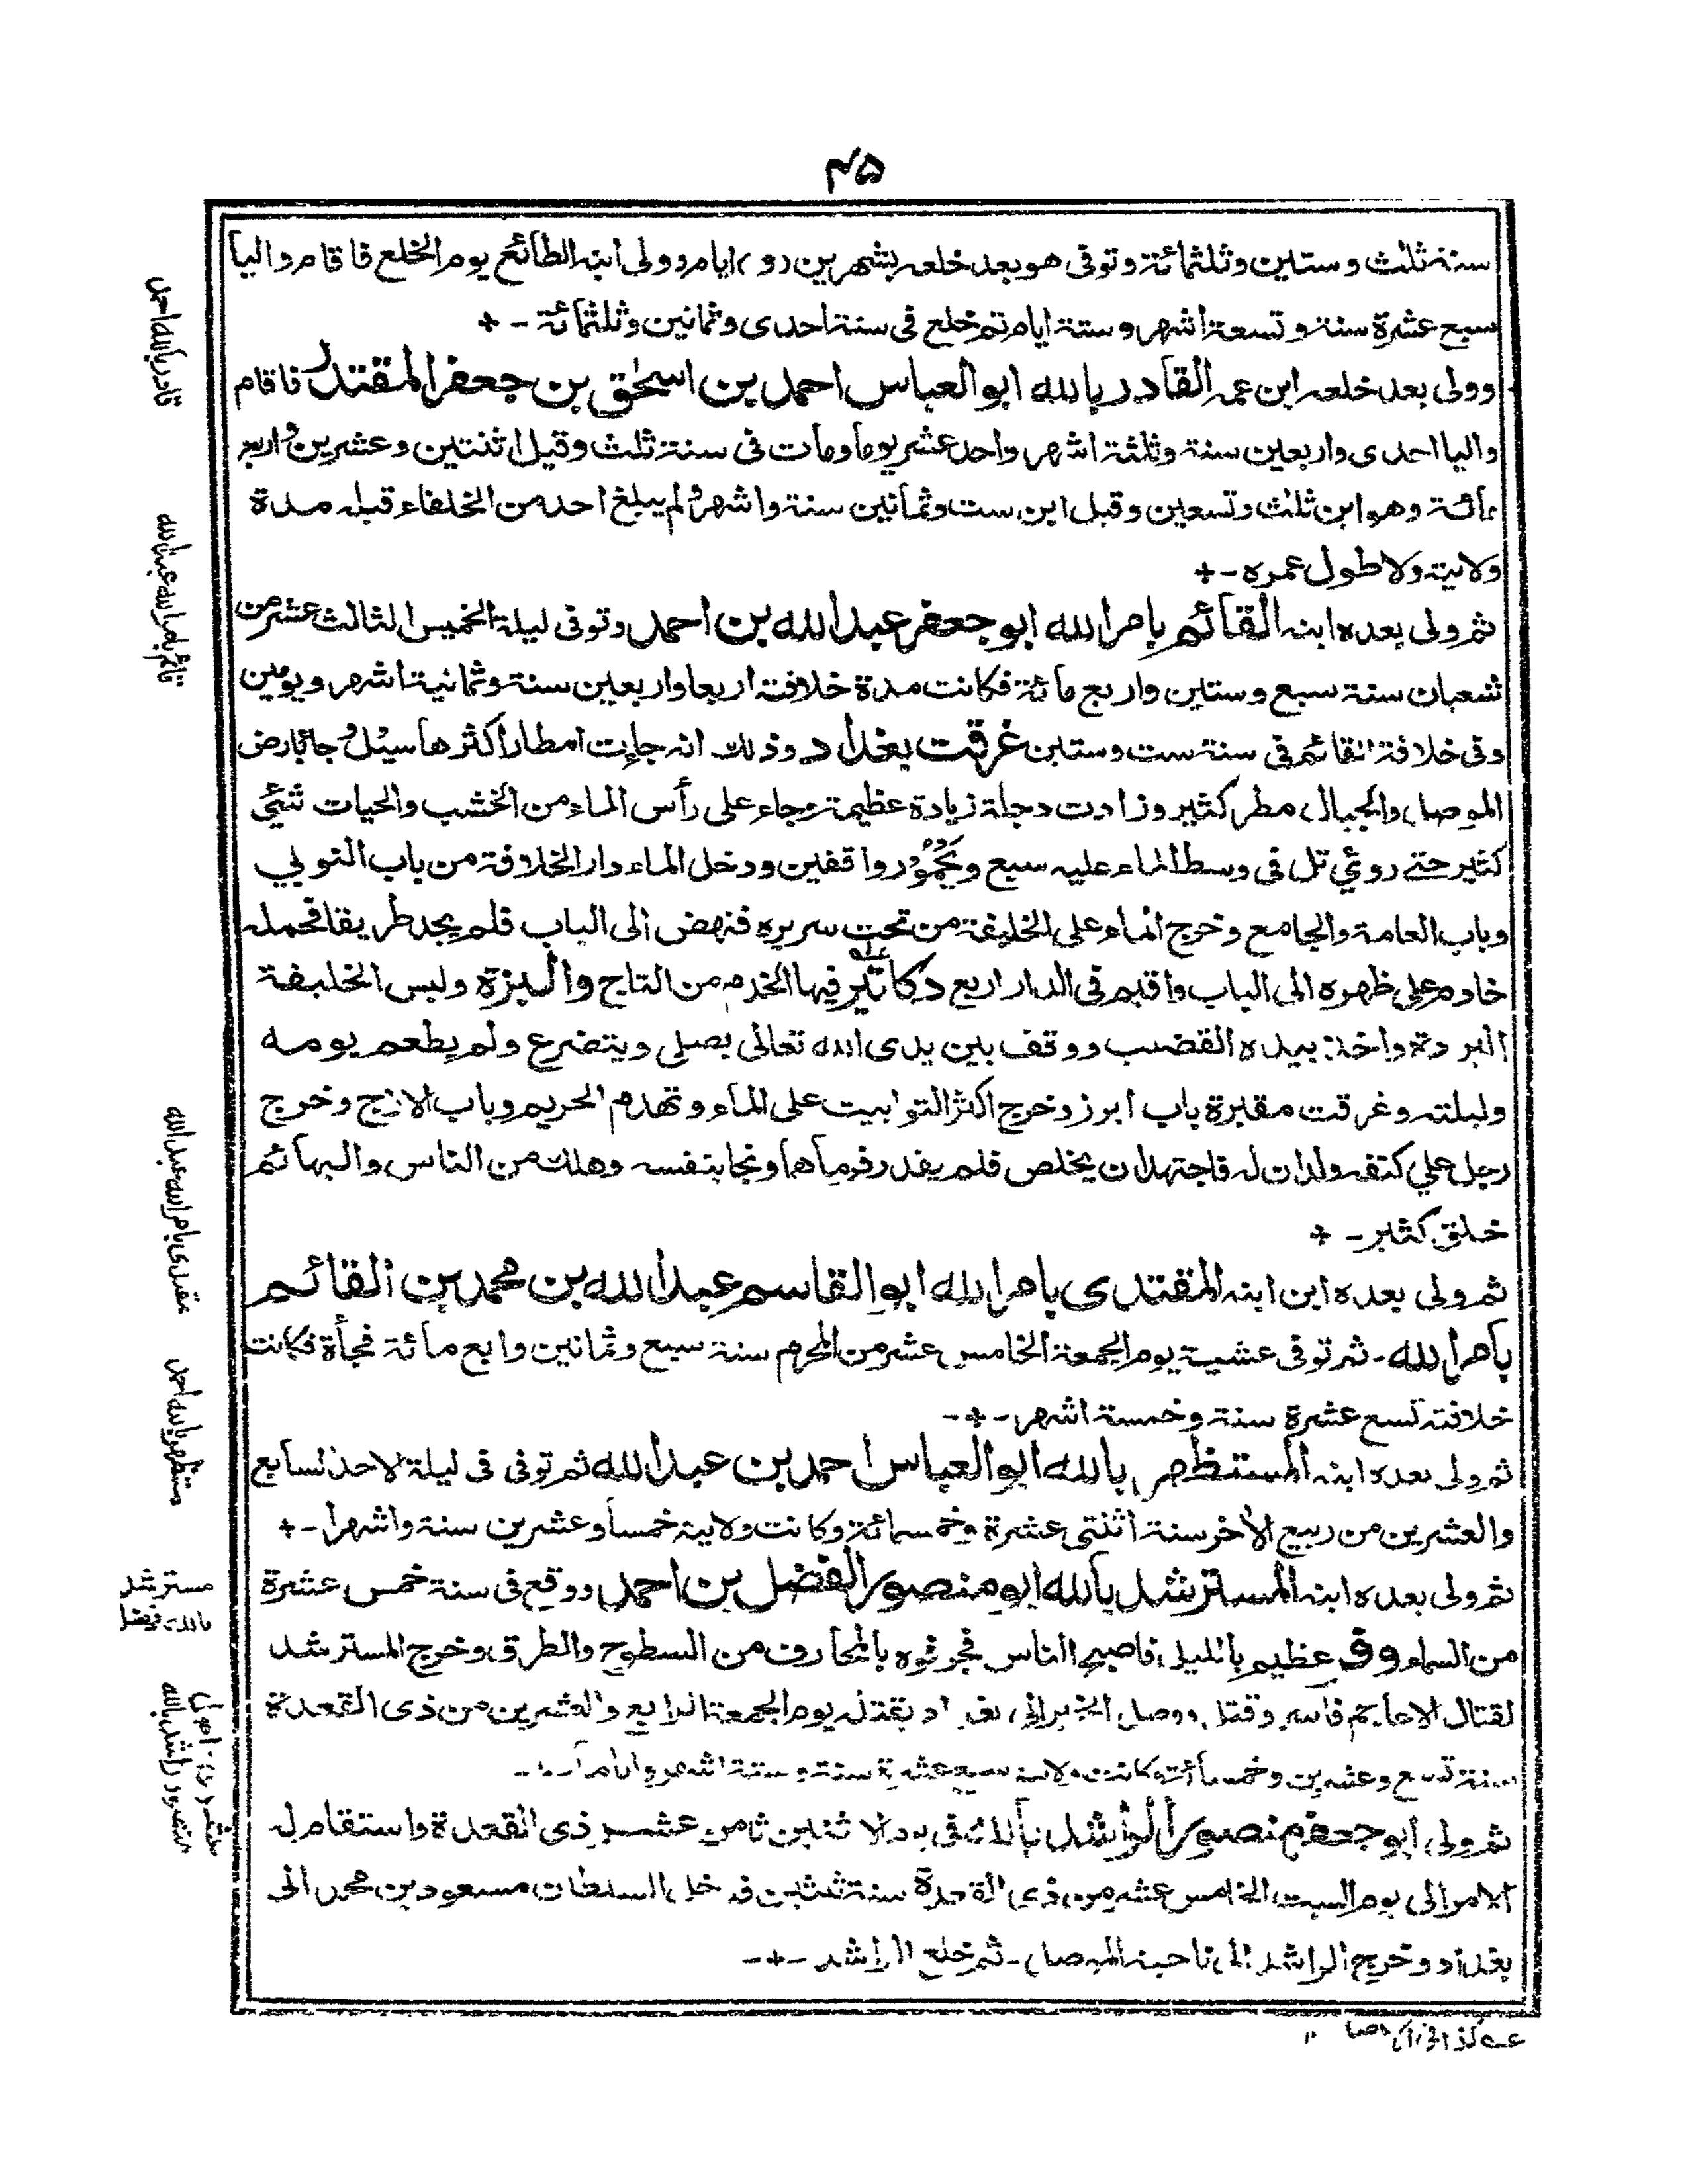 ۴۵
سنة ثلث وستين وثلثمائة وتوفى هو بعد خلعه بشهرين وايام وولى ابنه الطائع يوم الخلع فاقام واليا
سبع عشرة سنة وتسعة اشهر وستة ايام ثم خلع فى سنة احدى وثمانين وثلثمائة - +
وولى بعد خلعه ابن عمه القادر بالله ابو العباس احمد بن اسحٰق بن جعفر المقتدر فاقام
واليا احدى واربعين سنة وثلثة اشهر واحد عشر يوما ومات فى سنة ثلث وقيل اثنتين وعشرين واربع
مائة وهو ابن ثلث وتسعين وقيل ابن ست وثمانين سنة واشهر ولم يبلغ احد من الخلفاء قبله مدة
ولايته ولا طول عمره - +
ثم ولى بعده ابنه القائم بامر الله ابو جعفر عبد الله بن احمد وتوفى ليلة الخميس الثالث عشر من
شعبان سنة سبع وستين واربع مائة فكانت مدة خلافته اربعا واربعين سنة وثمانية اشهر ويومين
وفى خلافة القائم فى سنة ست وستين غرقت بغداد وذلك انه جاءت امطار اكثرها سيل وجا بارض
الموصل والجبال مطر كثير وزادت دجلة زيادة عظيمة وجاء على رأس الماء من الخشب والحيات شئى
كثير حتے روئي تل فى وسط الماء عليه سبع و واقفين ودخل الماء دار الخلافة من باب النوبي
وباب العامة والجامع وخرج الماء على الخليفة من تحت سريره فنهض الى الباب فلم يجد طريقا فحمله
خادم على ظهره الى الباب واقيم فى الدار اربع فيها الخدم من التاج والبزة ولبس الخليفة
البردة واخذ بيده القضيب ووقف بين يدى الله تعالى يصلى ويتضرع ولم يطعم يومه
وليلته وغرقت مقبرة باب ابرز وخرج اكثر التوابيت على الماء وتهدم الحريم وباب الازج وخرج
رجل على كتفه ولدان له فاجتهد ان يخلص فلم يقدر فرماهما ونجا بنفسه وهلك من الناس والبهائم
خلق كثير - +
ثم ولى بعده ابن ابنه المقتدى بامر الله ابو القاسم عبد الله بن محمد بن القائم
بامر الله - ثم توفى عشية يوم الجمعة الخامس عشر من المحرم سنة سبع وثمانين وابع مائة فجأة فكانت
خلافته تسع عشرة سنة وخمسة اشهر - + -
ثم ولى بعده ابنه المستظهر بالله ابو العباس احمد بن عبد الله ثم توفى فى ليلة الاحد لسابع
والعشرين من ربيع الآخر سنة اثنتى عشرة وخمسمائة وكانت ولايته خمسا وعشرين سنة واشهرا - +
ثم ولى بعده ابنه المسترشد بالله ابو منصور الفضل بن احمد ووقع فى سنة خمس عشرة
من السماء وفر عظيم بالليل فاصبح الناس بالمجارف من السطوح والطرق وخرج المسترشد
لقتال الاعاجم فاسر وقتل ووصل الخبر الى بغداد بقتله يوم الجمعة الرابع والعشرين من ذى القعدة
سنة تسع وعشرين وخمسمأئة وكانت ولايته سبع عشرة سنة وستة اشهر واياما -
ثم ولى ابو جعفر منصور الراشد بالله فى يوم الاثنين ثامن عشر ذى القعدة واستقام له
الامر الى يوم السبت الخامس عشر من ذى القعدة سنة ثلثين فدخل السلطان مسعود بن محمد الى
بغداد وخرج الراشد الى ناحية الموصل - ثم خلع الراشد - + -
قادر بالله احمد
قائم بامر الله عبد الله
مقتدى بامر الله عبد الله
مستظهر بالله احمد
مسترشد
بالله فضل
منصور راشد بالله
عه كذا فى الاصل ۱۲